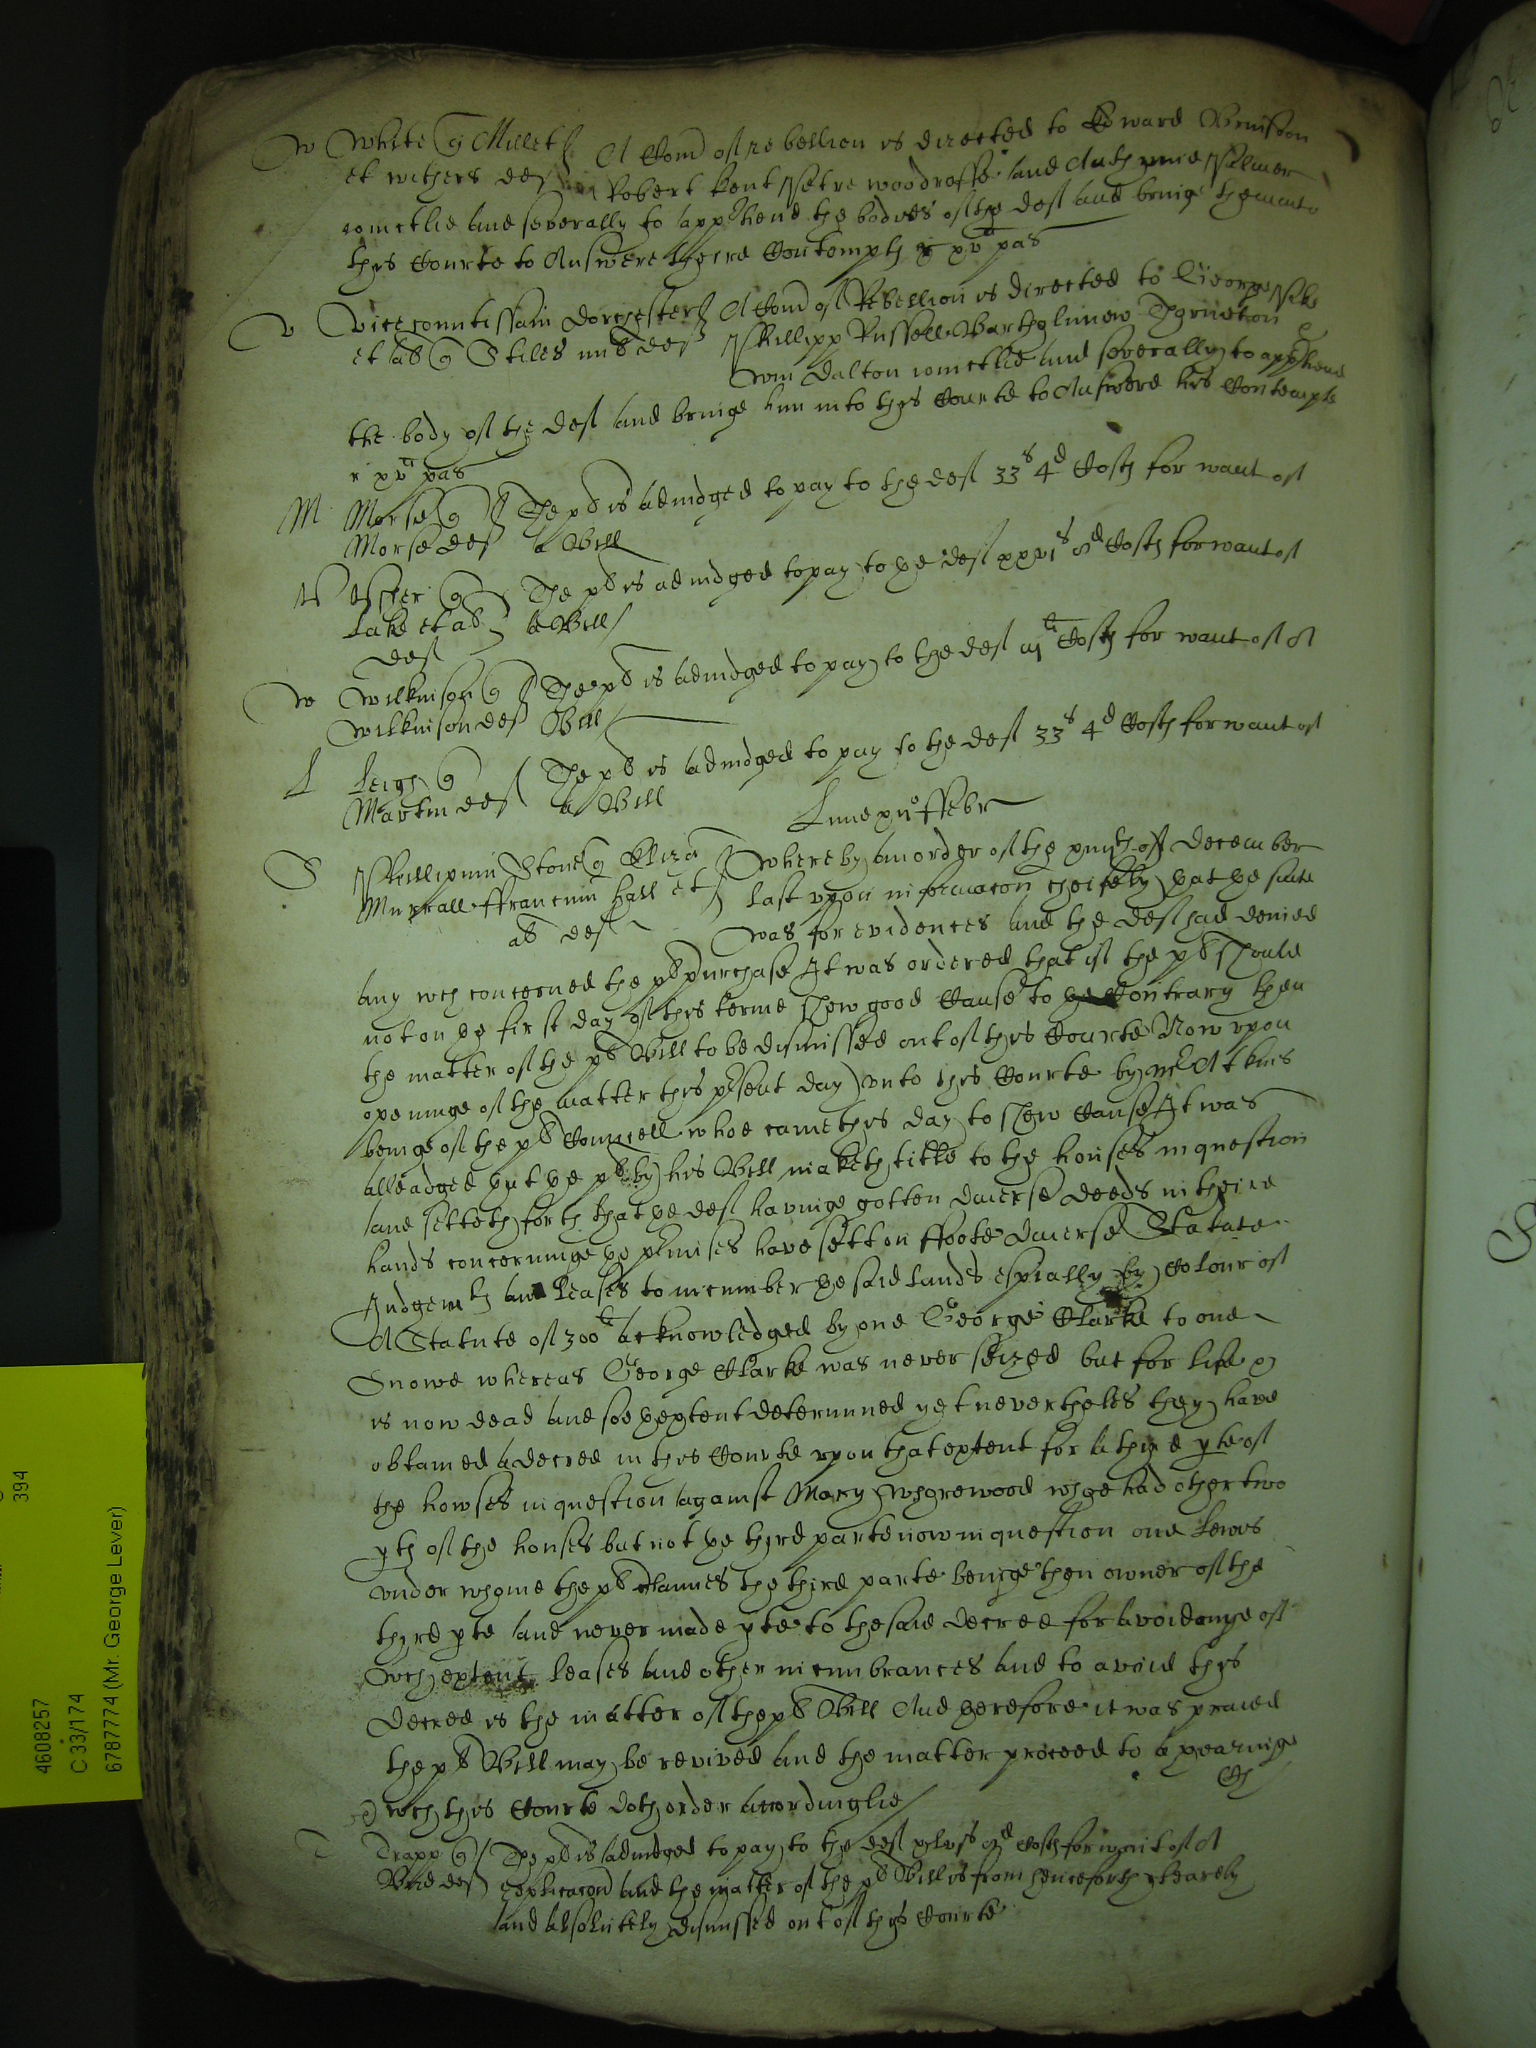 W White q Millett A Com of rebellion is directed to Edward
et withers def Robert Kent Petre woodroffe and Anthonie Palmer
iointlie and severally to apphend the bodies of the def and bringe them into
this Courte to Answere theire Contempts r xva pas
V Vicecomitissam Dorchester A Com of Rebellion is directed to George
et als q Stiles mil def Phillipp Russell Bartholmew Thornton
Wm Dalton iointlie and severally to apphend
the body of the def and bringe him into this Courte to Answere his Contempte
r xva pas
M Morse q The pl is adiudged to pay to the def 33s 4d Costs for want of
Morse def a Bill
V Ussher q The pl is adiudged to pay to ye def xxvis 8d Costs for want of
Lake et als a Bill
def
W Wilkinson q The pl is adiudged to pay to the def Costs for want of A
Wilkinson def Bill
L Leigh q The pl is adiudged to pay to the def 33s 4d Costs for want of
Martin def a Bill
Lune ffebr
S Phillipum Stone q Eliza Whereby an order of the of December
Murrall ffrancum Hall et last upon informacon cheifely yat ye suite
als def was for evidences and the def had denied
any wch concerned the pl purchase It was ordered that if the pl should
not on ye first day of this terme shew good Cause to ye Contrary then
the matter of the pl Bill to be dismissed out of this Courte Now upon
openinge of the matter this psent day unto this Courte by mr Atkins
beinge of the pl Councell whoe came this day to shew Cause It was
alleadged yat ye pl by his Bill maketh title to the houses in question
and setteth forth that ye def havinge gotten diverse deeds in theire
hands concerninge ye pmises have sett on ffoote diverse Statute
Iudgemts and leases to incumber ye said lands espially by Colour of
A Statute of 300li acknowledged by one George Clarke to one
Snowe whereas George Clarke was never seized but for life &
is now dead and soe ye extent determined yet nevertheles they have
obtained a decree in this Courte upon that extent for a third pte of
the howses in question against Mary Whorewood whoe had other two
pts of the houses but not ye third parte now in question one Lewes
under whome the pl Claimes the third parte beinge then owner of the
third pte and never made pte to the said decree for avoidange of
wch extent leases and other incumbrances and to avoid this
decree is the matter of the pl Bill And therefore it was praied
the pl Bill may be revived and the matter proceed to a hearinge
wch this Courte doth order accordinglie
T Trapp q The pl is adiudged to pay to the def Costs for want of A
def replicacon and the matter of the pl Bill is from henceforth clearely
and absolutely dismissed out of this Courte
394
4608257
C 33/174
6787774 (Mr. George Lever)